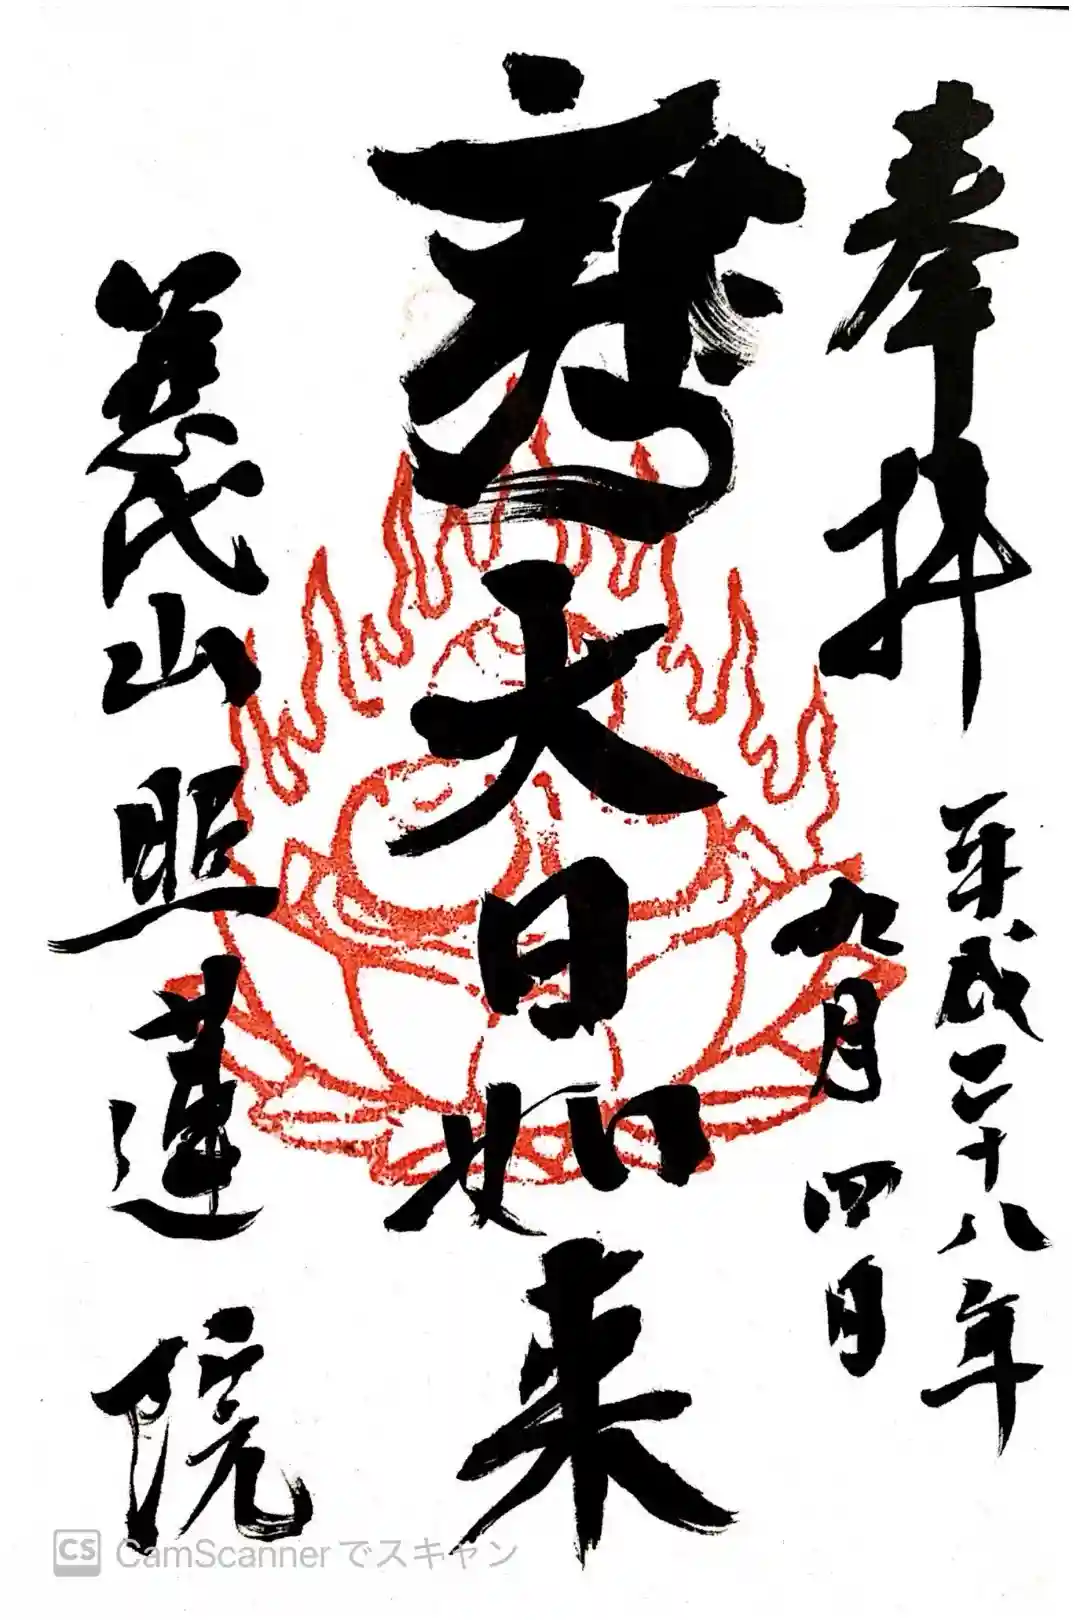 奉拝
平成二十八年
九月四日
大日如来
慈氏山 照蓮院
CS CamScannerでスキャン